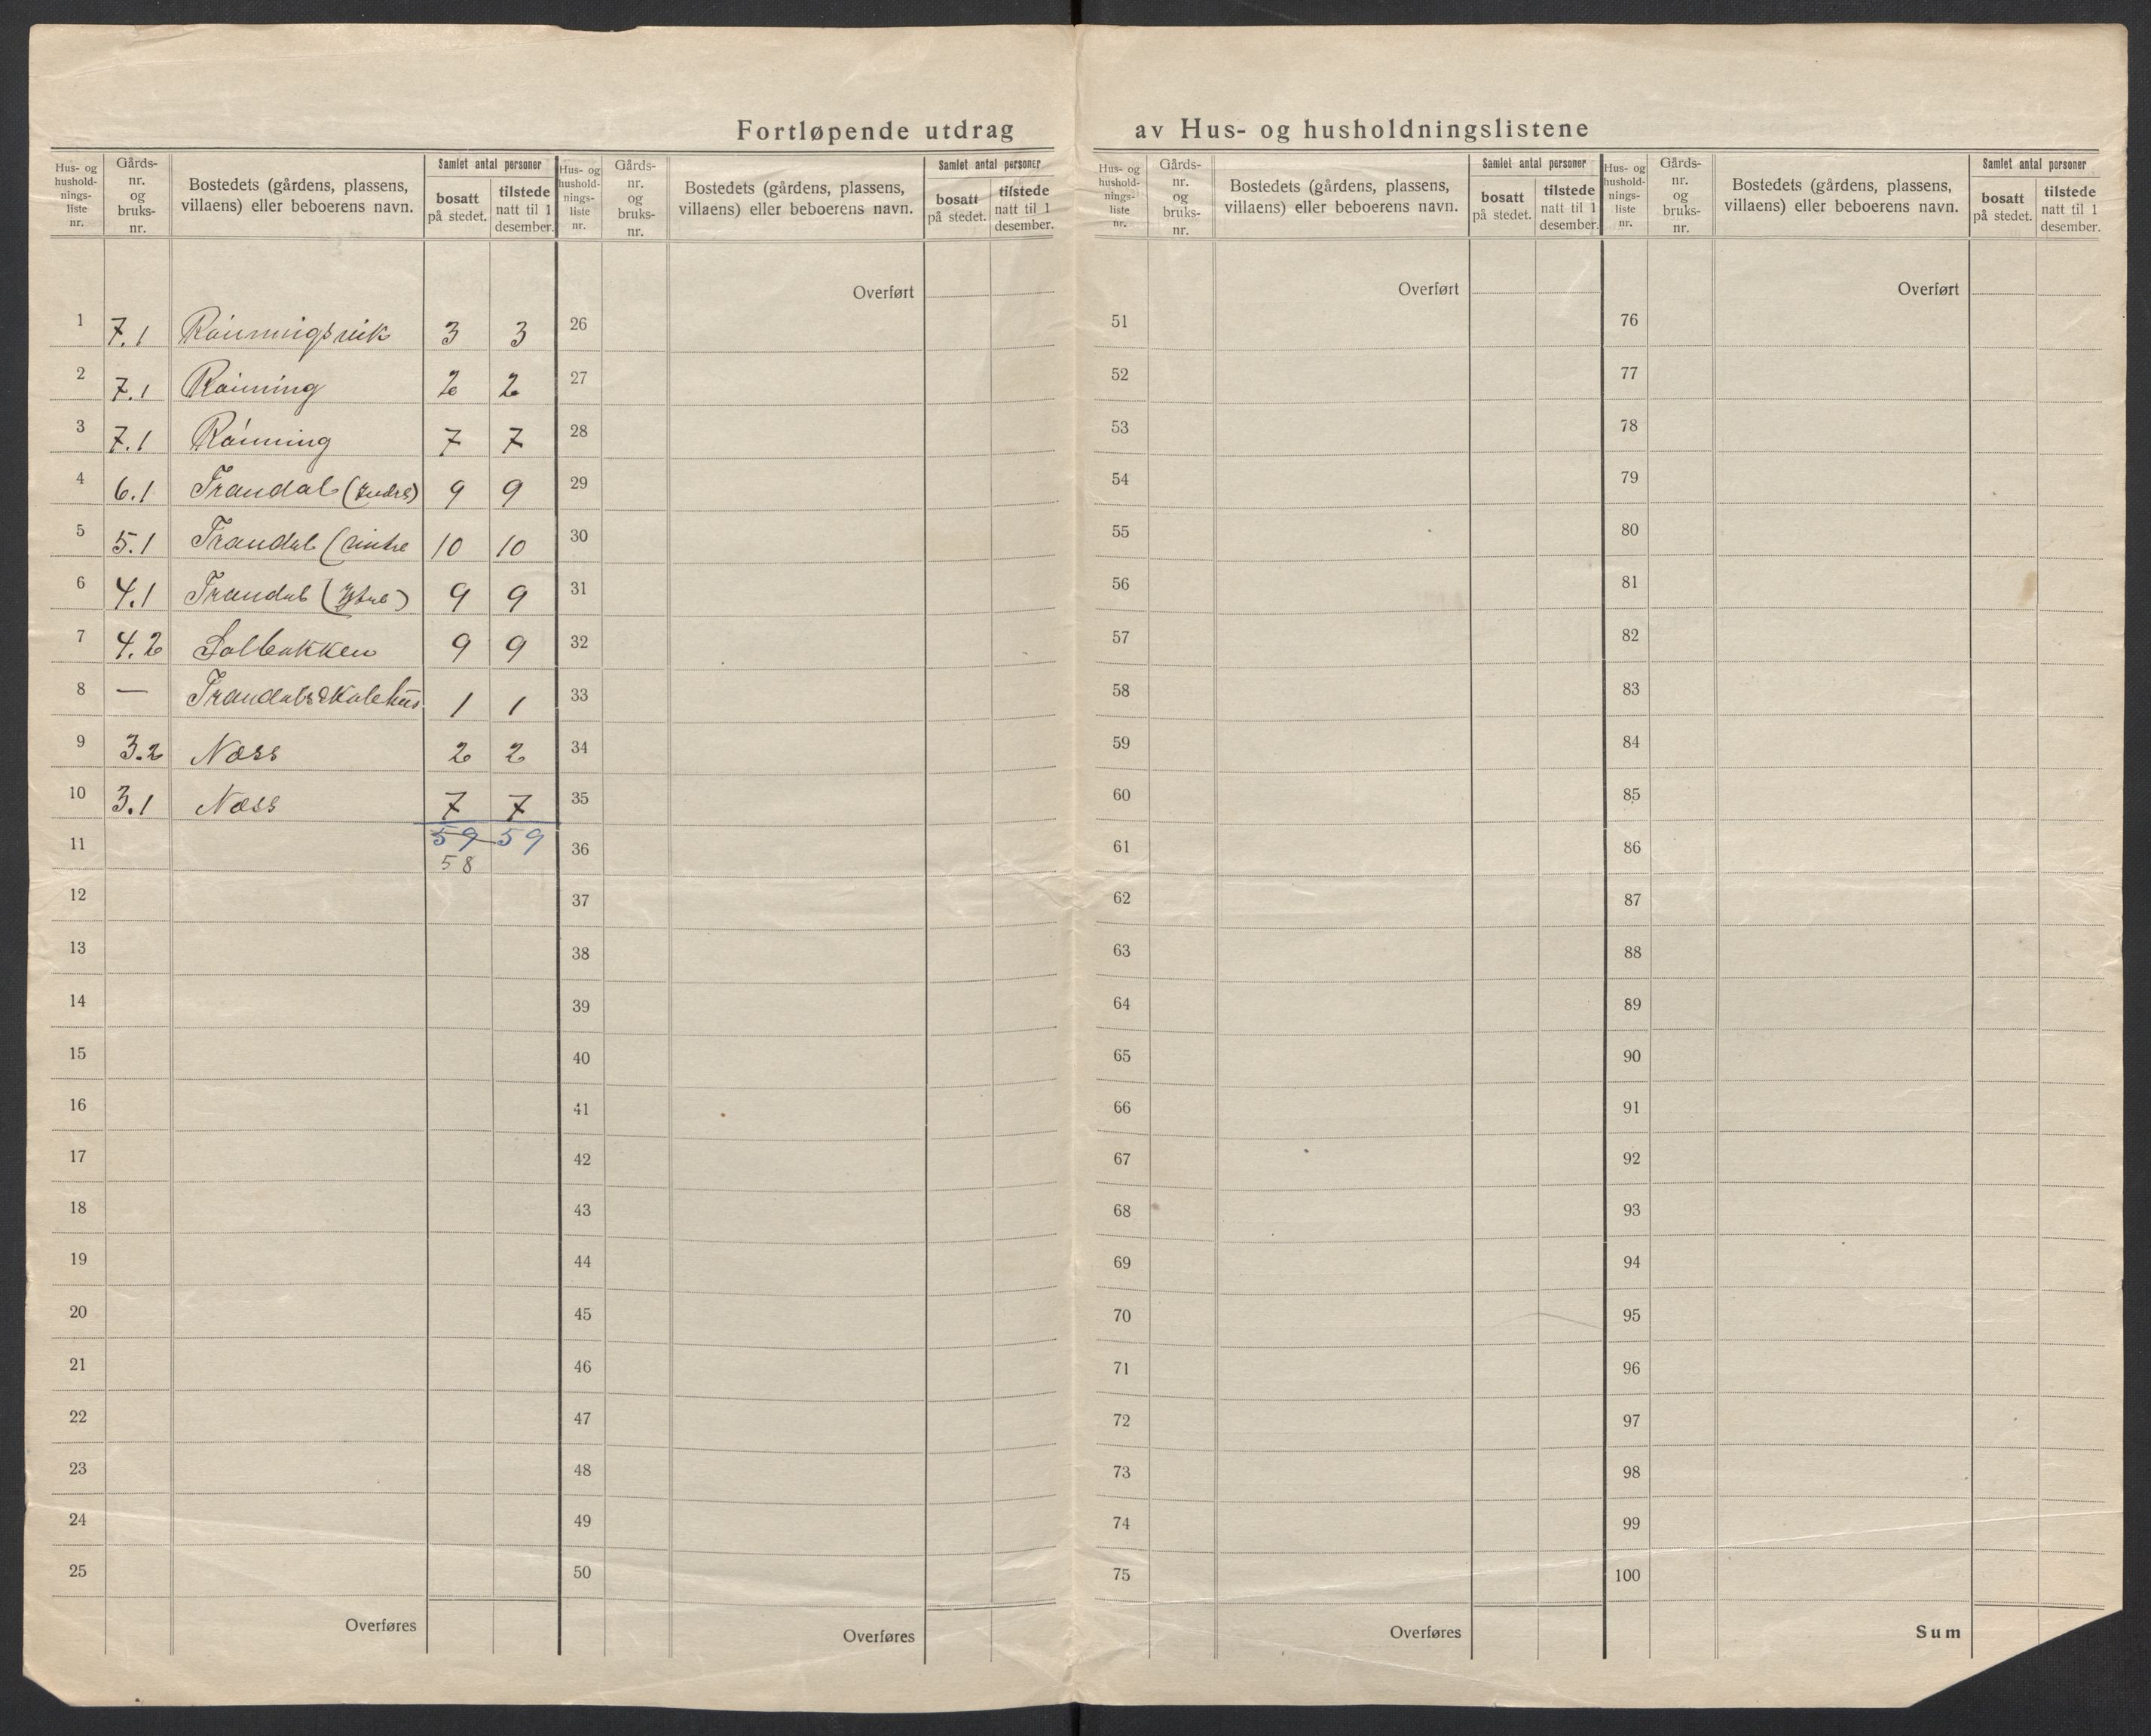 Fortløpende utdrag av Hus- og husholdningslistene
Hus- og hushold- nings- liste nr.
Gårds- nr. og bruks- nr.
Bostedets (gårdens, plassens, villaens) eller beboerens navn.
Samlet antal personer
bosatt på stedet.
tilstede natt til 1 desember.
1 7.1 Rönningsvik 3 3
2 7.1 Rönning 2 2
3 7.1 Rönning 7 7
4 6.1 Trandal (Indre) 9 9
5 5.1 Trandal (midtre 10 10
6 4.1 Trandal (Ytre) 9 9
7 4.2 Solbakken 9 9
8 — Trandal skolehus 1 1
9 3.2 Næss 2 2
10 3.1 Næss 7 7
11 59 59
58
12
13
14
15
16
17
18
19
20
21
22
23
24
25
Overføres
Hus- og hushold- nings- liste nr.
Gårds- nr. og bruks- nr.
Bostedets (gårdens, plassens, villaens) eller beboerens navn.
Samlet antal personer
bosatt på stedet.
tilstede natt til 1 desember.
Overført
26
27
28
29
30
31
32
33
34
35
36
37
38
39
40
41
42
43
44
45
46
47
48
49
50
Overføres
Hus- og hushold- nings- liste nr.
Gårds- nr. og bruks- nr.
Bostedets (gårdens, plassens, villaens) eller beboerens navn.
Samlet antal personer
bosatt på stedet.
tilstede natt til 1 desember.
Overført
51
52
53
54
55
56
57
58
59
60
61
62
63
64
65
66
67
68
69
70
71
72
73
74
75
Overføres
Hus- og hushold- nings- liste nr.
Gårds- nr. og bruks- nr.
Bostedets (gårdens, plassens, villaens) eller beboerens navn.
Samlet antal personer
bosatt på stedet.
tilstede natt til 1 desember.
Overført
76
77
78
79
80
81
82
83
84
85
86
87
88
89
90
91
92
93
94
95
96
97
98
99
100
Sum